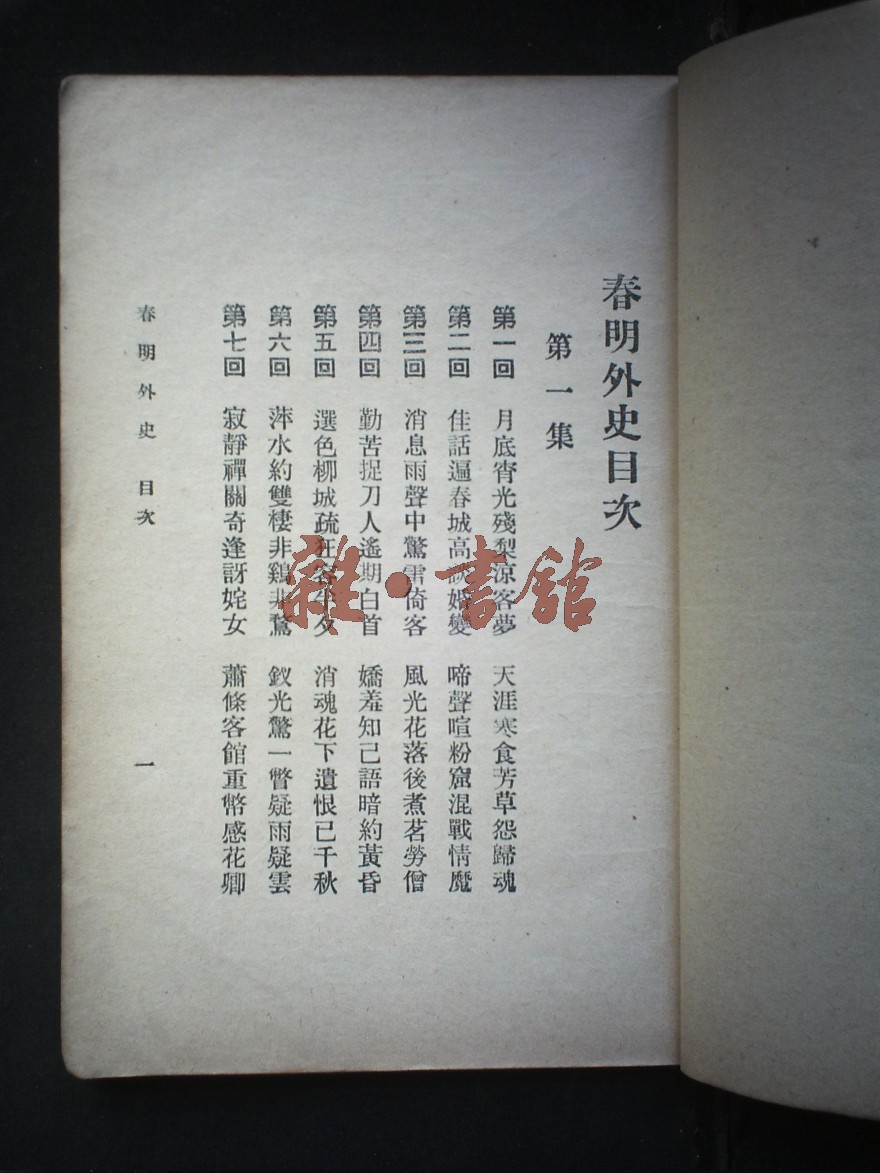 春明外史目次
第一集
第一回 月底宵光殘梨涼客夢 天涯寒食芳草怨歸魂
第二回 佳話遍春城高談婚變 啼聲喧粉窟混戰情魔
第三回 消息雨聲中驚雷倚客 風光花落後煮茗勞僧
第四回 勤苦捉刀人遙期白首 嬌羞知己語暗約黃昏
第五回 選色柳城疏狂容半夕 消魂花下遺恨已千秋
第六回 萍水約雙棲非鷄非鶩 釵光驚一瞥疑雨疑雲
第七回 寂靜禪關奇逢訝姹女 蕭條客館重幣感花卿
春明外史 目次
一
雜·書館